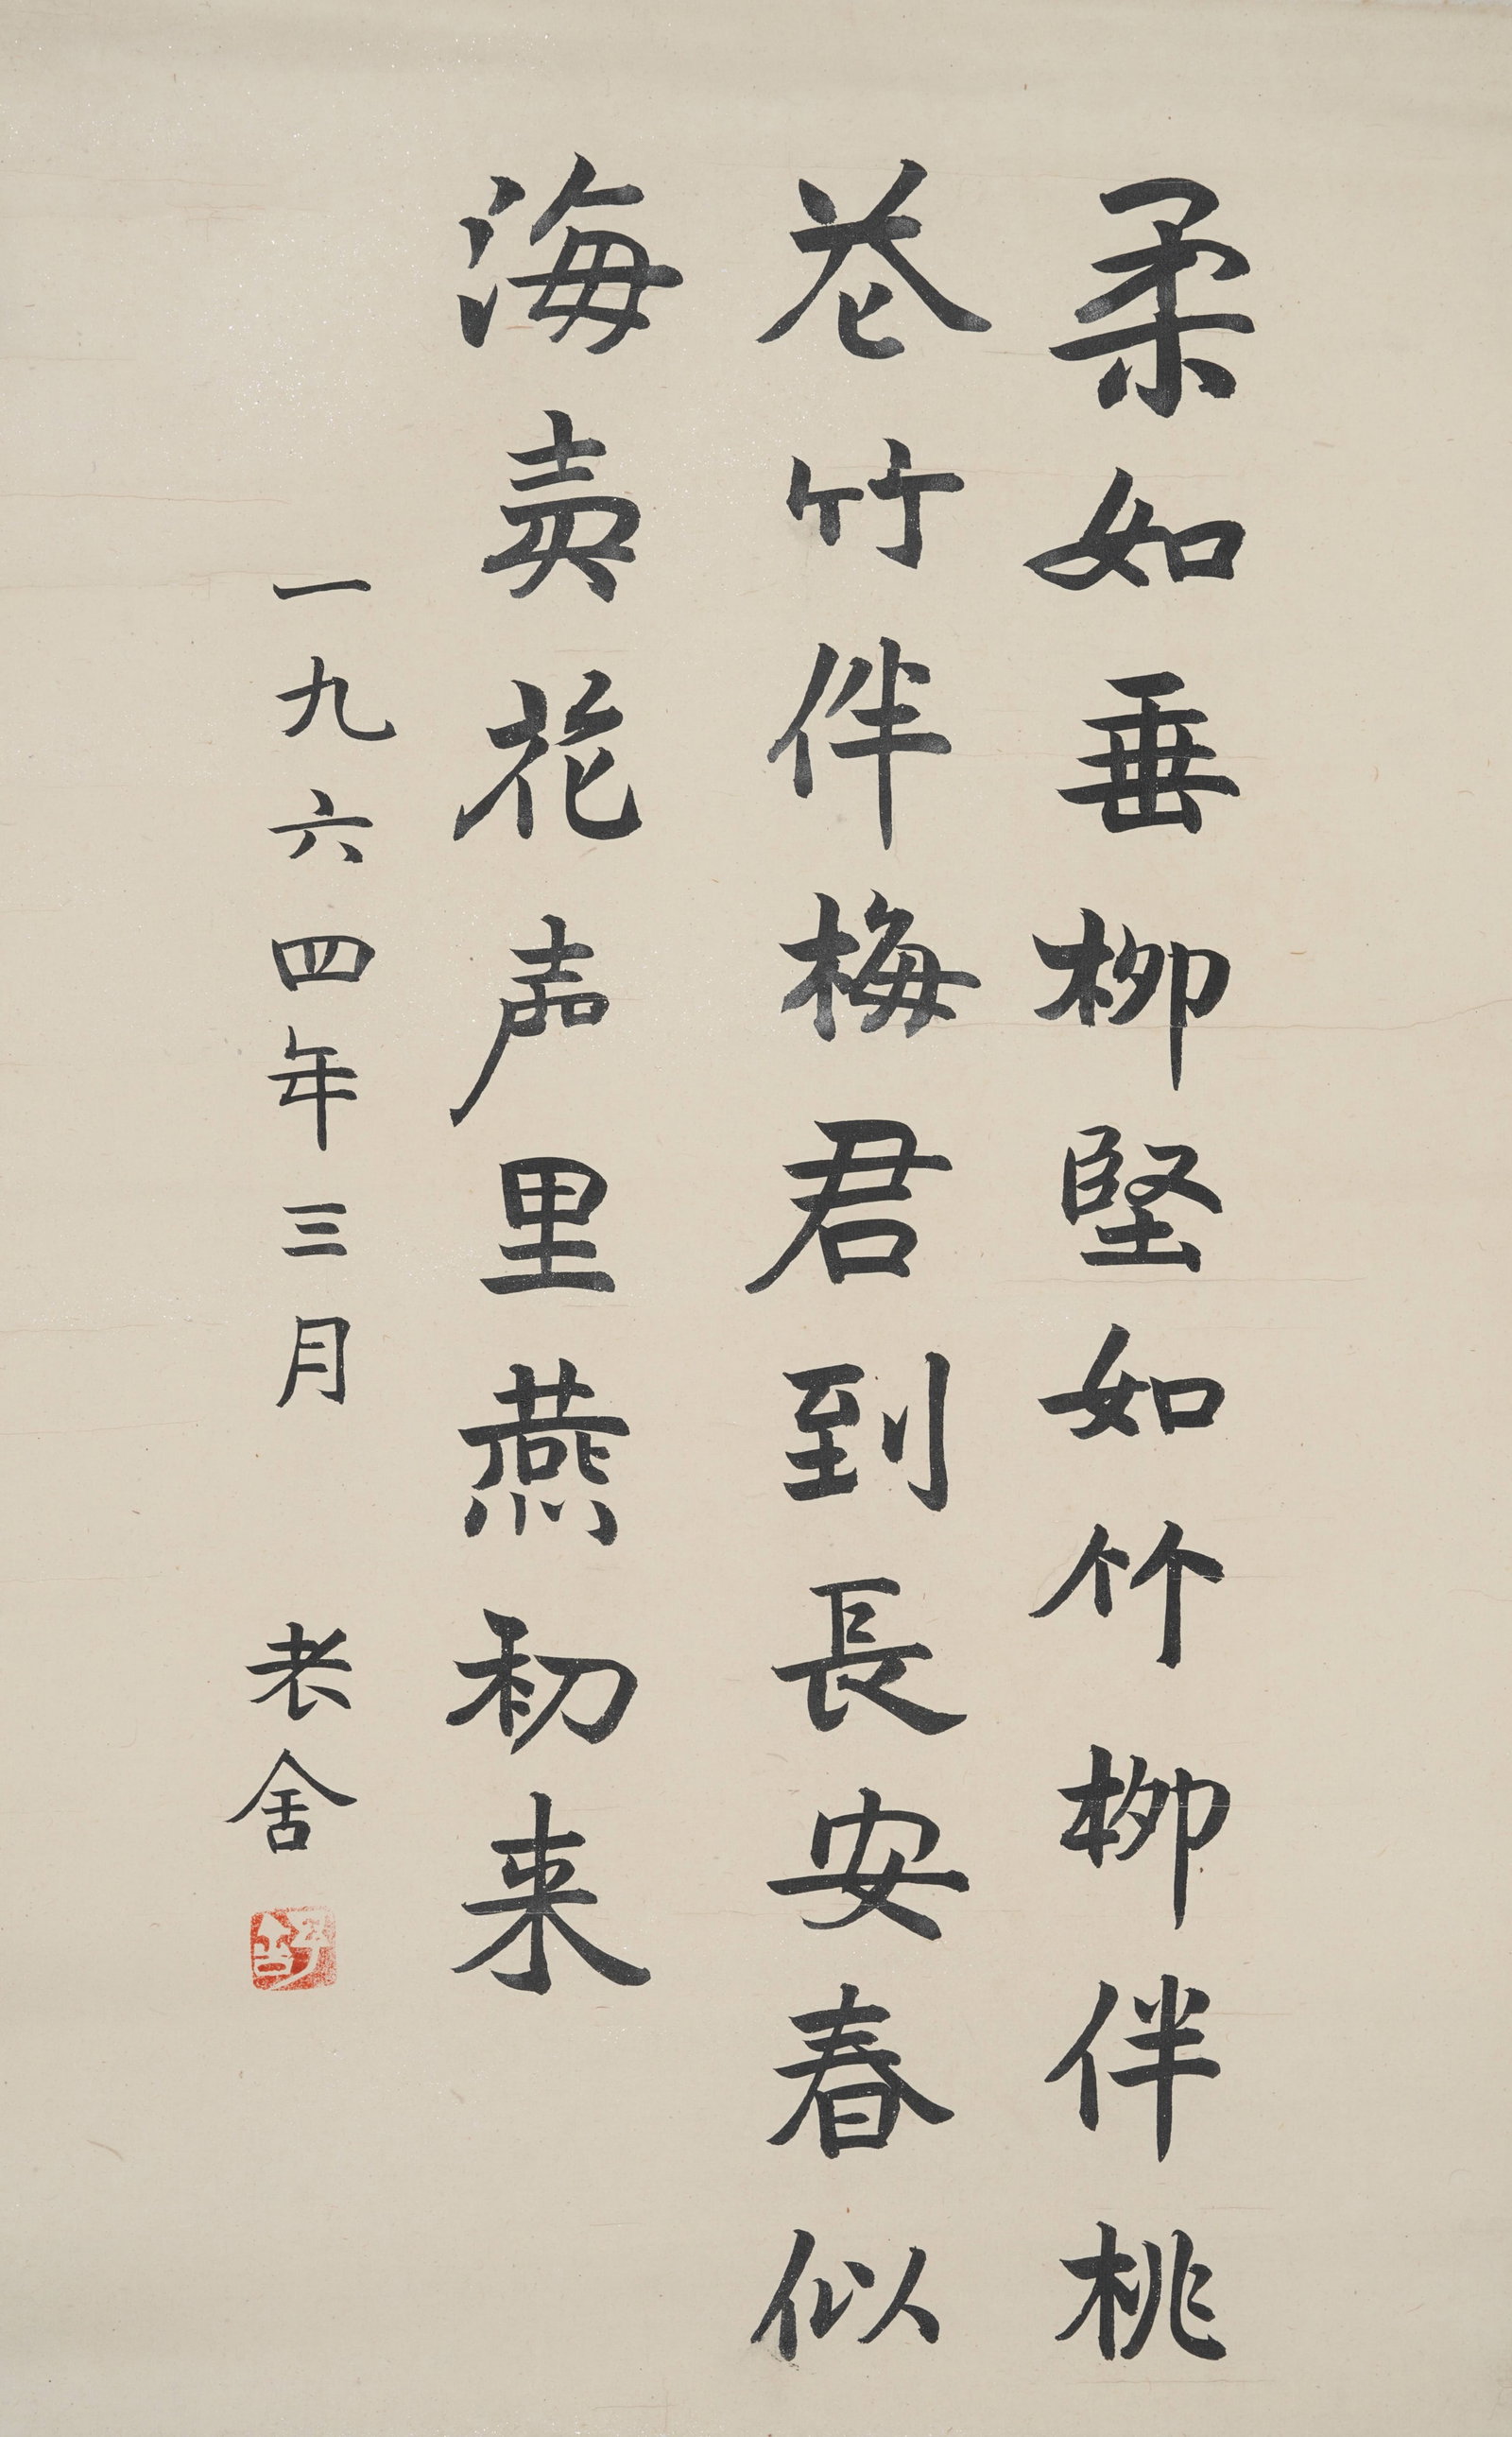 柔如垂柳堅如竹柳伴桃
花竹伴梅君到長安春似
海卖花声里燕初来
一九六四年三月 老舍
舒